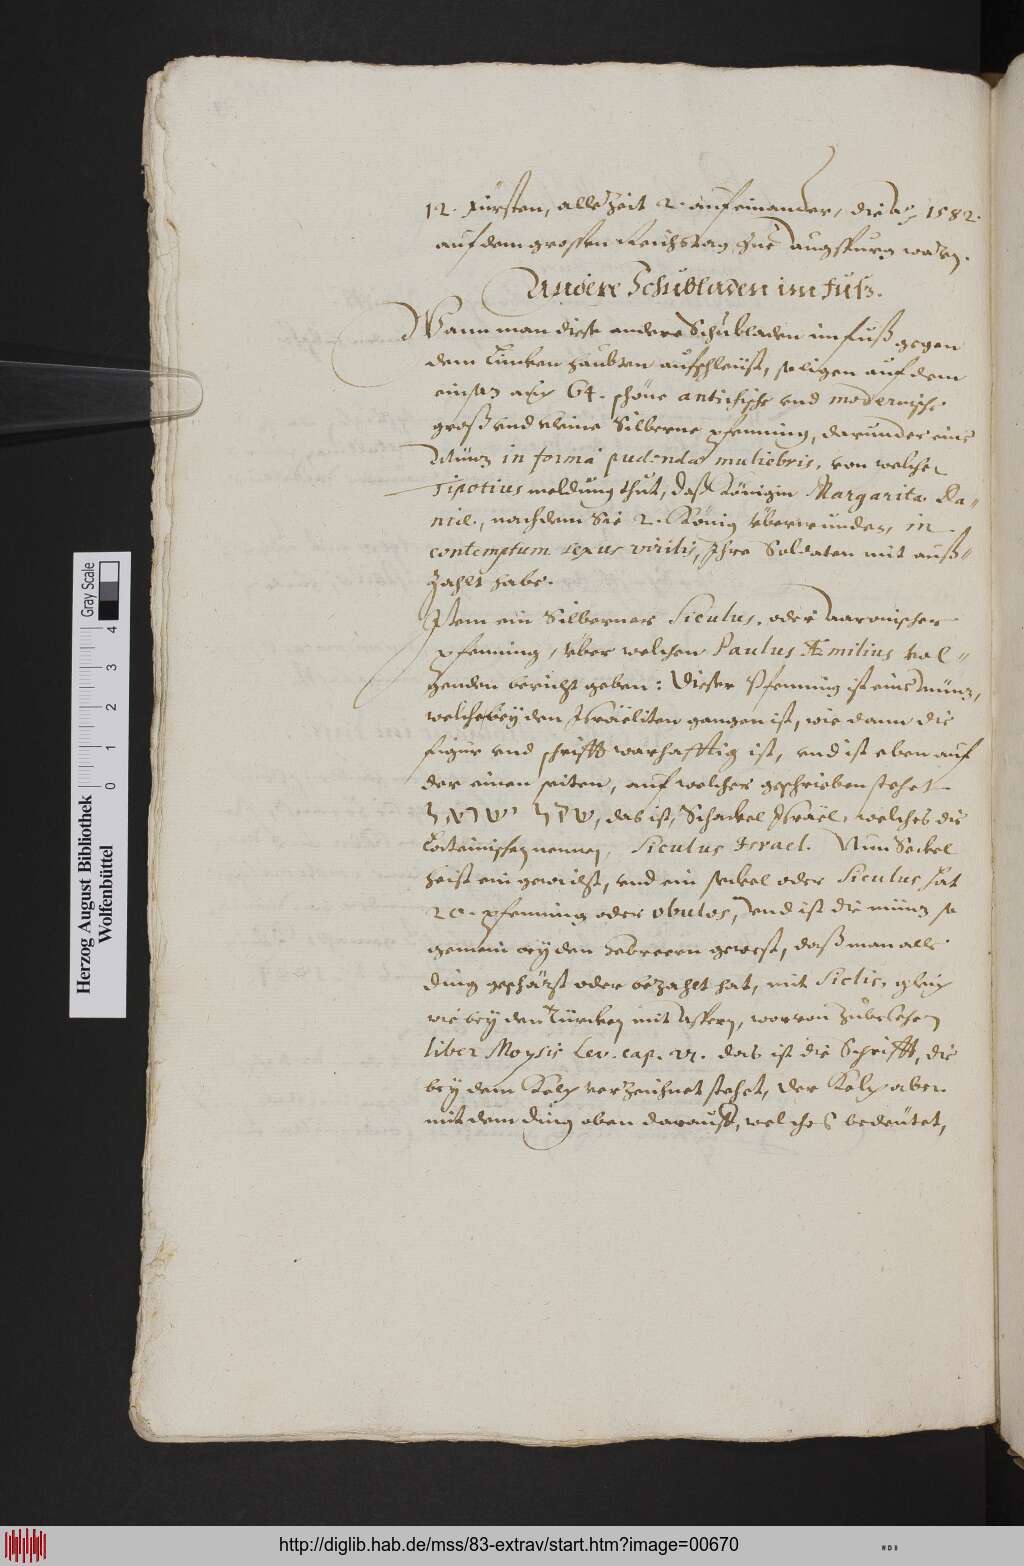 12. Fürsten, allezeit 2. auf einander, die Aº 1582.
auf dem grossen Reichstag zue Augspurg waren.
Andere Schubladen im fuß.
Wann man diese andere Schubladen im fuß gegen
dem Lincken aufschleüst, so ligen auf dem
einsaz 64. schöne antichische vnd modernische
groß vnd kleine Silberne pfenning, darunder eine
Münz in forma pudendæ muliebris, von welcher
Tipotius meldung thut, daß Königin Margarita Da-
niæ, nachdem Sie 2. König überwunden, in
contemptum sexus virilis, Ihre Soldaten mit auß-
zahlt habe.
Item ein Silberner Siculus, oder Aaronischer
pfenning, über welchen Paulus Æmilius vol-
genden bericht geben: Dieser Pfenning ist eine münz,
welche bey den Israëliten gangen ist, wie dann die
figur vnd schrifft warhafftig ist, vnd ist eben auf
der einen seiten, auf welcher geschrieben stehet
das ist, Schackel Israël, welches die
Lateinischen nennen, Siculus Israel. Nun Seckel
heist ein gewicht, vnd ein seckel oder Siculus hat
20. pfenning oder obulos, vnd ist die münz so
gemein bey den Hebreern gewest, daß man alle
ding geschäzt oder bezahlt hat, mit Siclis, gleich
wie bey den Türcken mit Aspern, wovon zubelesen
liber Moysis Lev. cap. vi. das ist die Schrifft, die
bey dem Kelch verzeichnet stehet, der Kelch aber
mit dem ding oben darauß, welches bedeütet,
Herzog August Bibliothek
Wolfenbüttel
0 1 2 3 4
Gray Scale
http://diglib.hab.de/mss/83-extrav/start.htm?image=00670